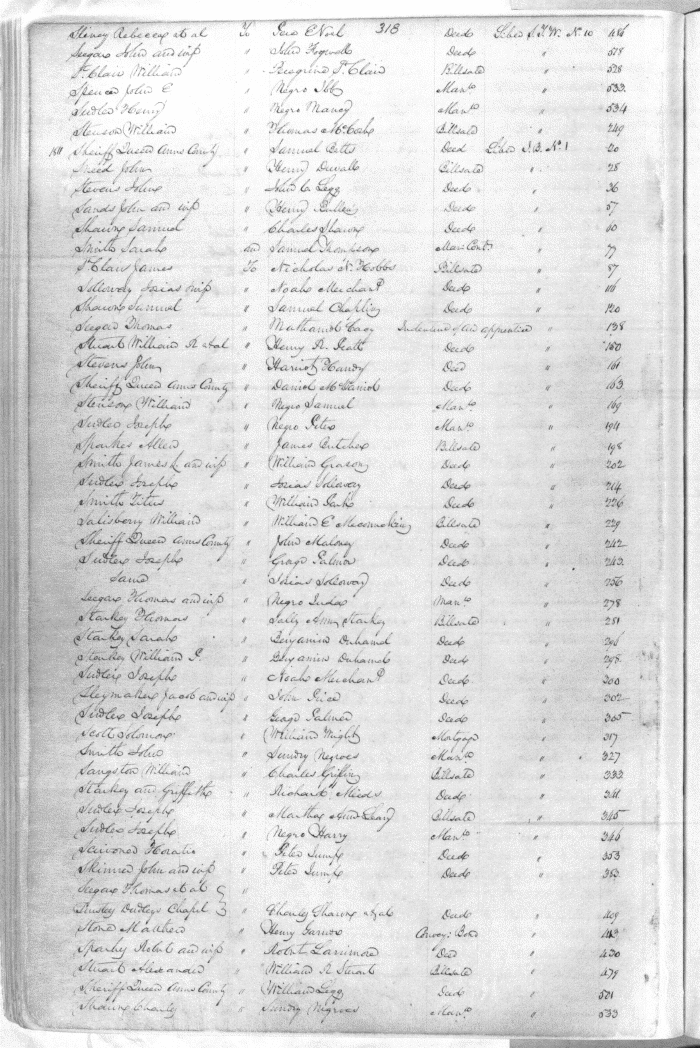 318
Rebecca et al To Geo E Noel Deed Liber J.T.W. No 10 486
Seegar John and wife " John Deed " 518
St Clair William " Peregrine St Clair Billsale " 528
Spencer John C " Negro Ibb Mans. " 533
Sudler Henry " Negro Nancy Mans. " 534
Stenson William " Thomas McCabe Billsale " 249
1811 Sheriff Queen Anns County " Samuel Betts Deed Liber J.B. No 1 20
Sneed John " Henry Duvall Billsale " 28
Stevens John " John C Legg Deed " 36
Sands John and wife " Henry Pullen Deed " 57
Sharene Samuel " Charles Sharene Deed " 60
Smith Sarah and Samuel Thompson Mar: Cont: " 77
St Clair James To Nicholas N. Hobbs Billsale " 87
Solloway Josias wife " Noah Merchant Deed " 116
Samuel " Samuel Chaplin Deed " 120
Seegar Thomas " Nathaniel Cacy Indenture of an apprentice " 138
Stuart William R et al " Henry R. Deed " 150
Stevens John " Harriot Handy Deed " 161
Sheriff Queen Anns County " Daniel McDaniel Deed " 163
Stenson William " Negro Samuel Mans. " 169
Sudler Joseph " Negro Peter Mans. " 194
Sparkes Allen " James Butcher Billsale " 198
Smith James L and wife " William Grason Deed " 202
Sudler Joseph " Josias Solloway Deed " 214
Smith Titus " William Deed " 226
Salisbury William " William E Meconnikin Billsale " 229
Sheriff Queen Anns County " John Maloney Deed " 242
Sudler Joseph " George Palmer Deed " 243
Same " Josias Solloway Deed " 256
Seegar Thomas and wife " Negro Mans. " 278
Starkey Thomas " Sally Ann Starkey Billsale " 281
Starkey Sarah " Benjamin Duhamel Deed " 296
Starkey William P. " Benjamin Duhamel Deed " 298
Sudler Joseph " Noah Merchant Deed " 300
Sleymaker Jacob and wife " John Price Deed " 302
Sudler Joseph " George Palmer Deed " 305
Scott Solomon " William Wright Mortgage " 317
Smith John " Sundry Negroes Mans. " 327
Sangston William " Charles Griffin Billsale " 333
Starkey and Griffith " Richard Meeds Deed " 341
Sudler Joseph " Martha Ann Billsale " 345
Sudler Joseph " Negro Harry Mans. " 346
Horatio " Peter Deed " 353
Skinner John and wife " Peter Deed " 383
Seegar Thomas et al "
Trustees Dudleys Chapel " Charles Sharene et al Deed " 409
Stone Matthew " Henry Garnor Convey: Bond " 413
Sparks Robt and wife " Robt Larrimore Deed " 430
Stuart Alexander " William R Stuart Billsale " 479
Sheriff Queen Anns County " William Legg Deed " 501
Charles " Sundry Negroes Mans. " 533